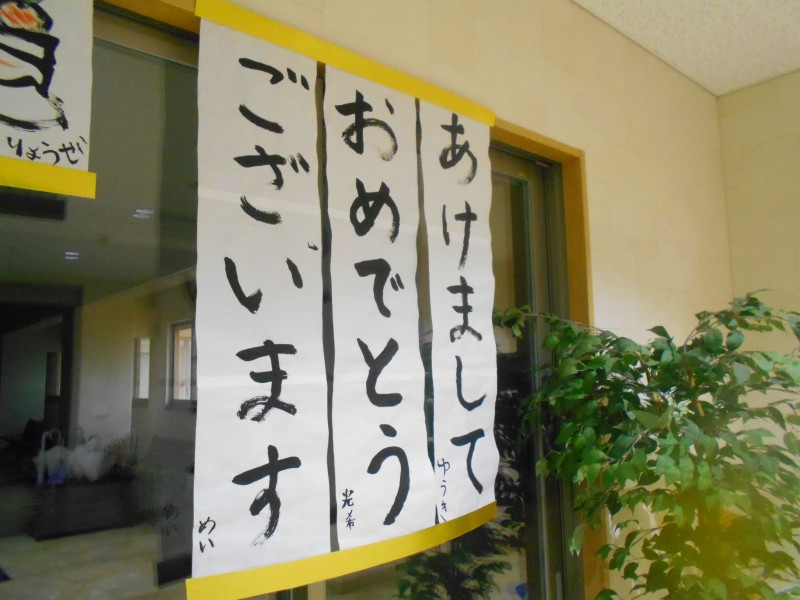 あけまして
ゆうき
おめでとう
光希
ございます
めい
りょうせい